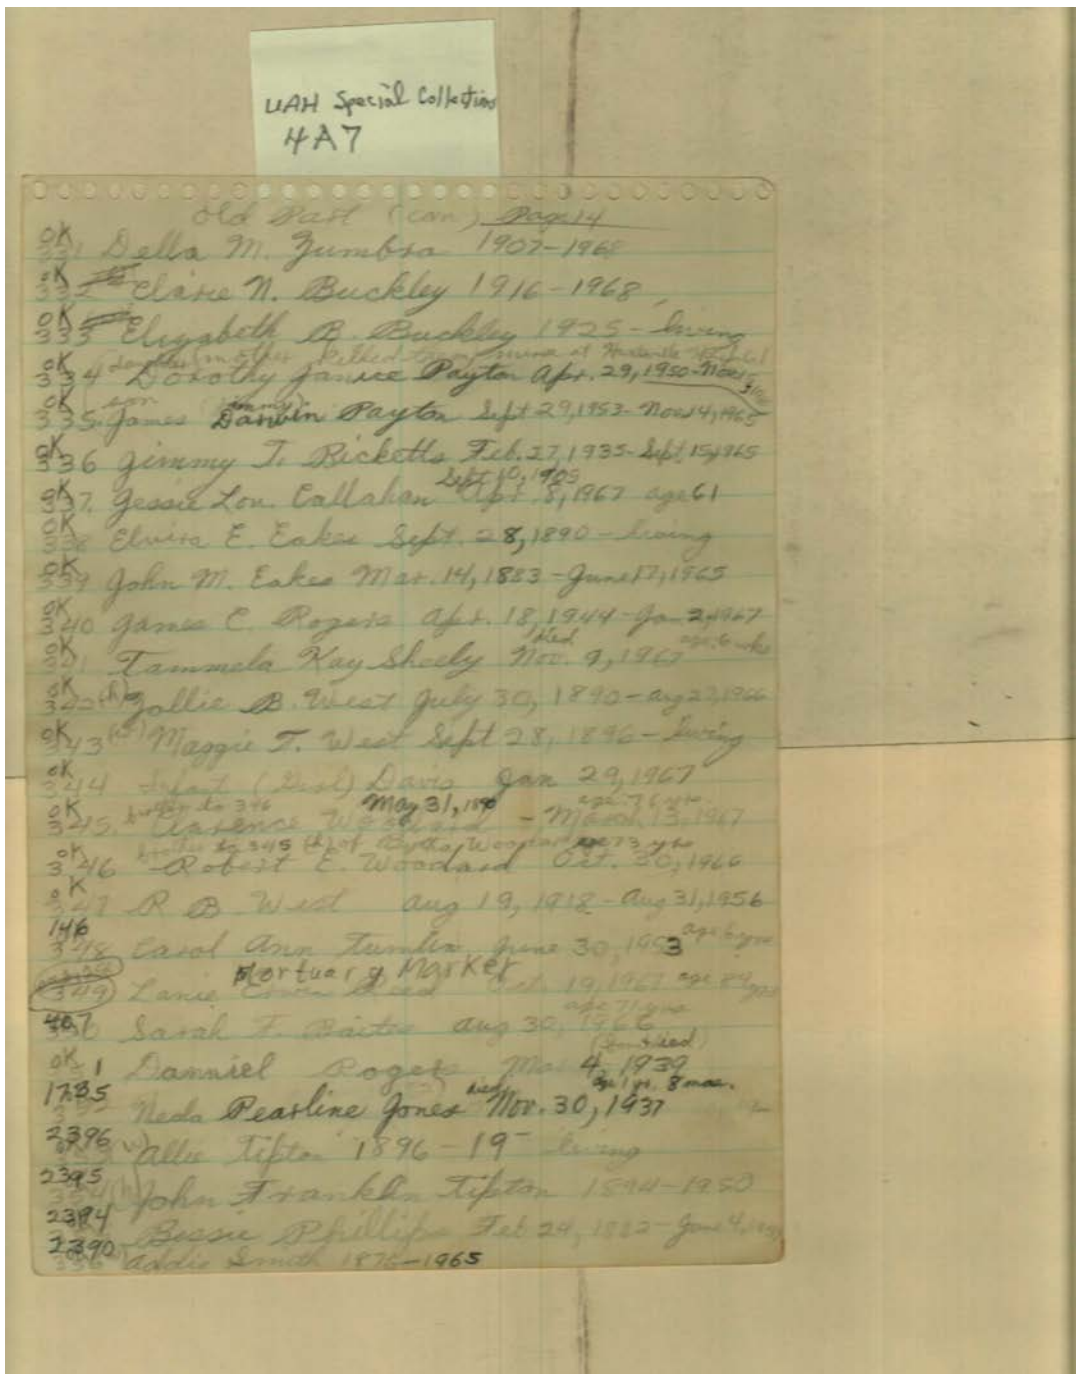 UAH Special Collections
4A7
Old Part (con) Page 14
OK
331 Della M. Zumbro 1907-1968
OK
332 Elarie N. Buckley 1916-1968
OK
333 Elizabeth B. Buckley 1925- living
mother killed at Huntsville
OK
334 Dorothy Janice Payton Apr. 29, 1950-Nov
OK
son (Jimmy)
335. James Darwin Payton Sept 29, 1953- Nov 14, 1965
OK
336 Jimmy T. Ricketts Feb. 27, 1935- Sept. 15, 1965
Sept 10, 1905
OK
337. Jessie Lou. Callahan Apr. 8, 1967 age 61
OK
338 Elvira E. Eakes Sept. 28, 1890- living
OK
339 John M. Eakes Mar. 14, 1883-June 17, 1965
OK
340 James C. Rogers Apr. 18, 1944-Ja 2, 1967
died age. 6 wks
OK
341 Tammela Kay Sheely Nov. 9, 1967
OK
342 (h) Zollie B. West July 30, 1890-Aug 27, 1966
OK
343 (w) Maggie T. West Sept 28, 1896- living
OK
344 Infant (Girl) Davis Jan 29, 1967
brother to 346 May 31, 1890 age. 76 yrs
OK
345. Clarence Woodard - March 13, 1967
brother to 345 (h) of Woodard age 73 yrs
OK
346 Robert E. Woodard Oct. 30, 1966
OK
347 R B. West Aug 19, 1918- Aug 31, 1956
146
348 Carol Ann Tumlin June 30, 1953 age 6 yrs
Mortuary Marker
349 Lanie Reed Oct. 19, 1967 age 89 yrs
age 71 yrs
407
350 Sarah F. Baites Aug 30, 1966
OK
1 Danniel Rogers Mar 4, 1939
died age 1 yr. 8 mos.
1735
Neda Pearline Jones Nov. 30, 1937
2396
(w) Allie Tipton 1896-19- living
2395
354 (h) John Franklin Tipton 1894-1950
2394
Bessie Phillips Feb 29, 1882-June 4,
2390
356 Addie Smith 1876-1965